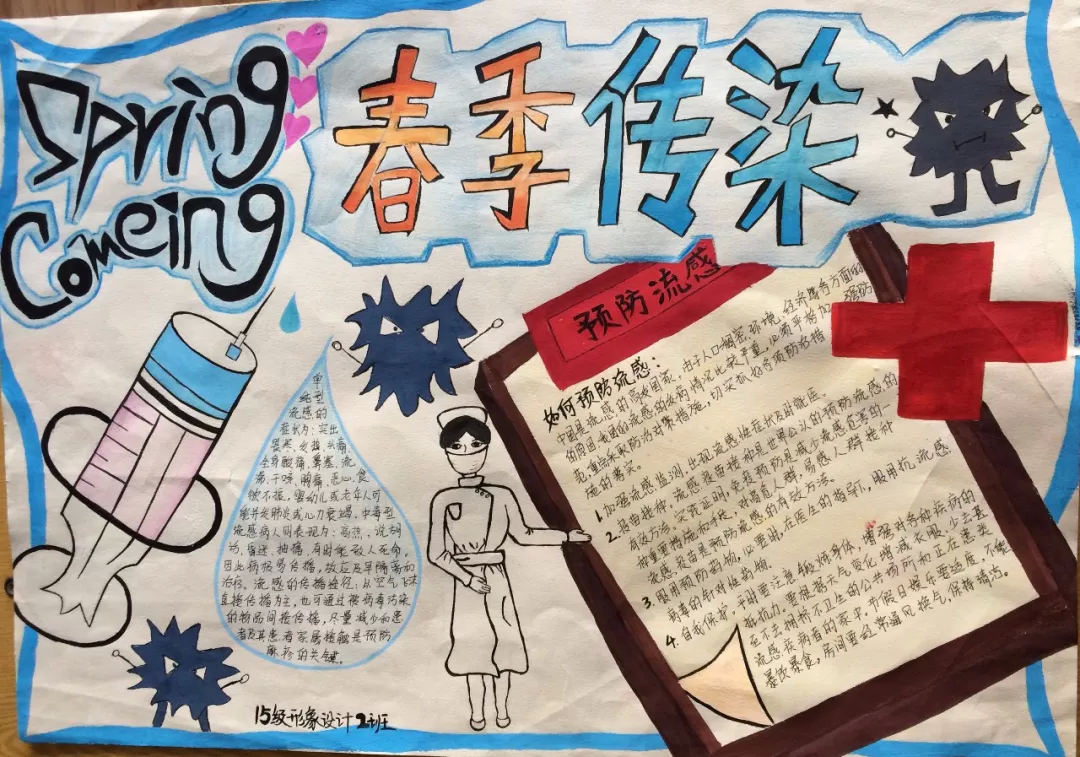 Spring
Comeing
春季传染
预防流感
如何预防流感:
中国是流感的高发国家，由于人口稠密、环境、经济
范，重点采取防治对策措施，切实抓好各项预防措
施的落实。
1.加强流感监测，出现流感性症状及时就医
2.
有效方法，实践证明，免疫预防是减少流感危害的一
种重要措施和手段，对高危人群、易感人群接种
流感疫苗是预防流感的有效方法。
3.服用预防药物，必要时，在医生的指导下，服用抗流感
病毒的针对性药物。
4.自我保护，平时要注意锻炼身体，增强对各种疾病的
抵抗力。要根据天气变化增减衣服，少去甚
至不去拥挤不卫生的公共场所和正在患类
流感疾病者的家中，节假日娱乐要适度，不能
暴饮暴食，房间要经常通风换气，保持清洁。
单
纯型
流感的
症状为：突出
畏寒、发热、头痛、
全身酸痛、鼻塞、流
涕、干咳、胸痛、恶心、食
欲不振，婴幼儿或老年人可
能并发肺炎或心力衰竭。中毒型
流感病人则表现为：高热、说胡
话、昏迷、抽搐，有时能致人死命。
因此病极易传播，故应及早隔离和
治疗。流感的传播途径：以空气飞沫
直接传播为主，也可通过被病毒污染
的物品间接传播，尽量减少和患
者及其患者家属接触是预防
麻疹的关键。
15级形象设计2班